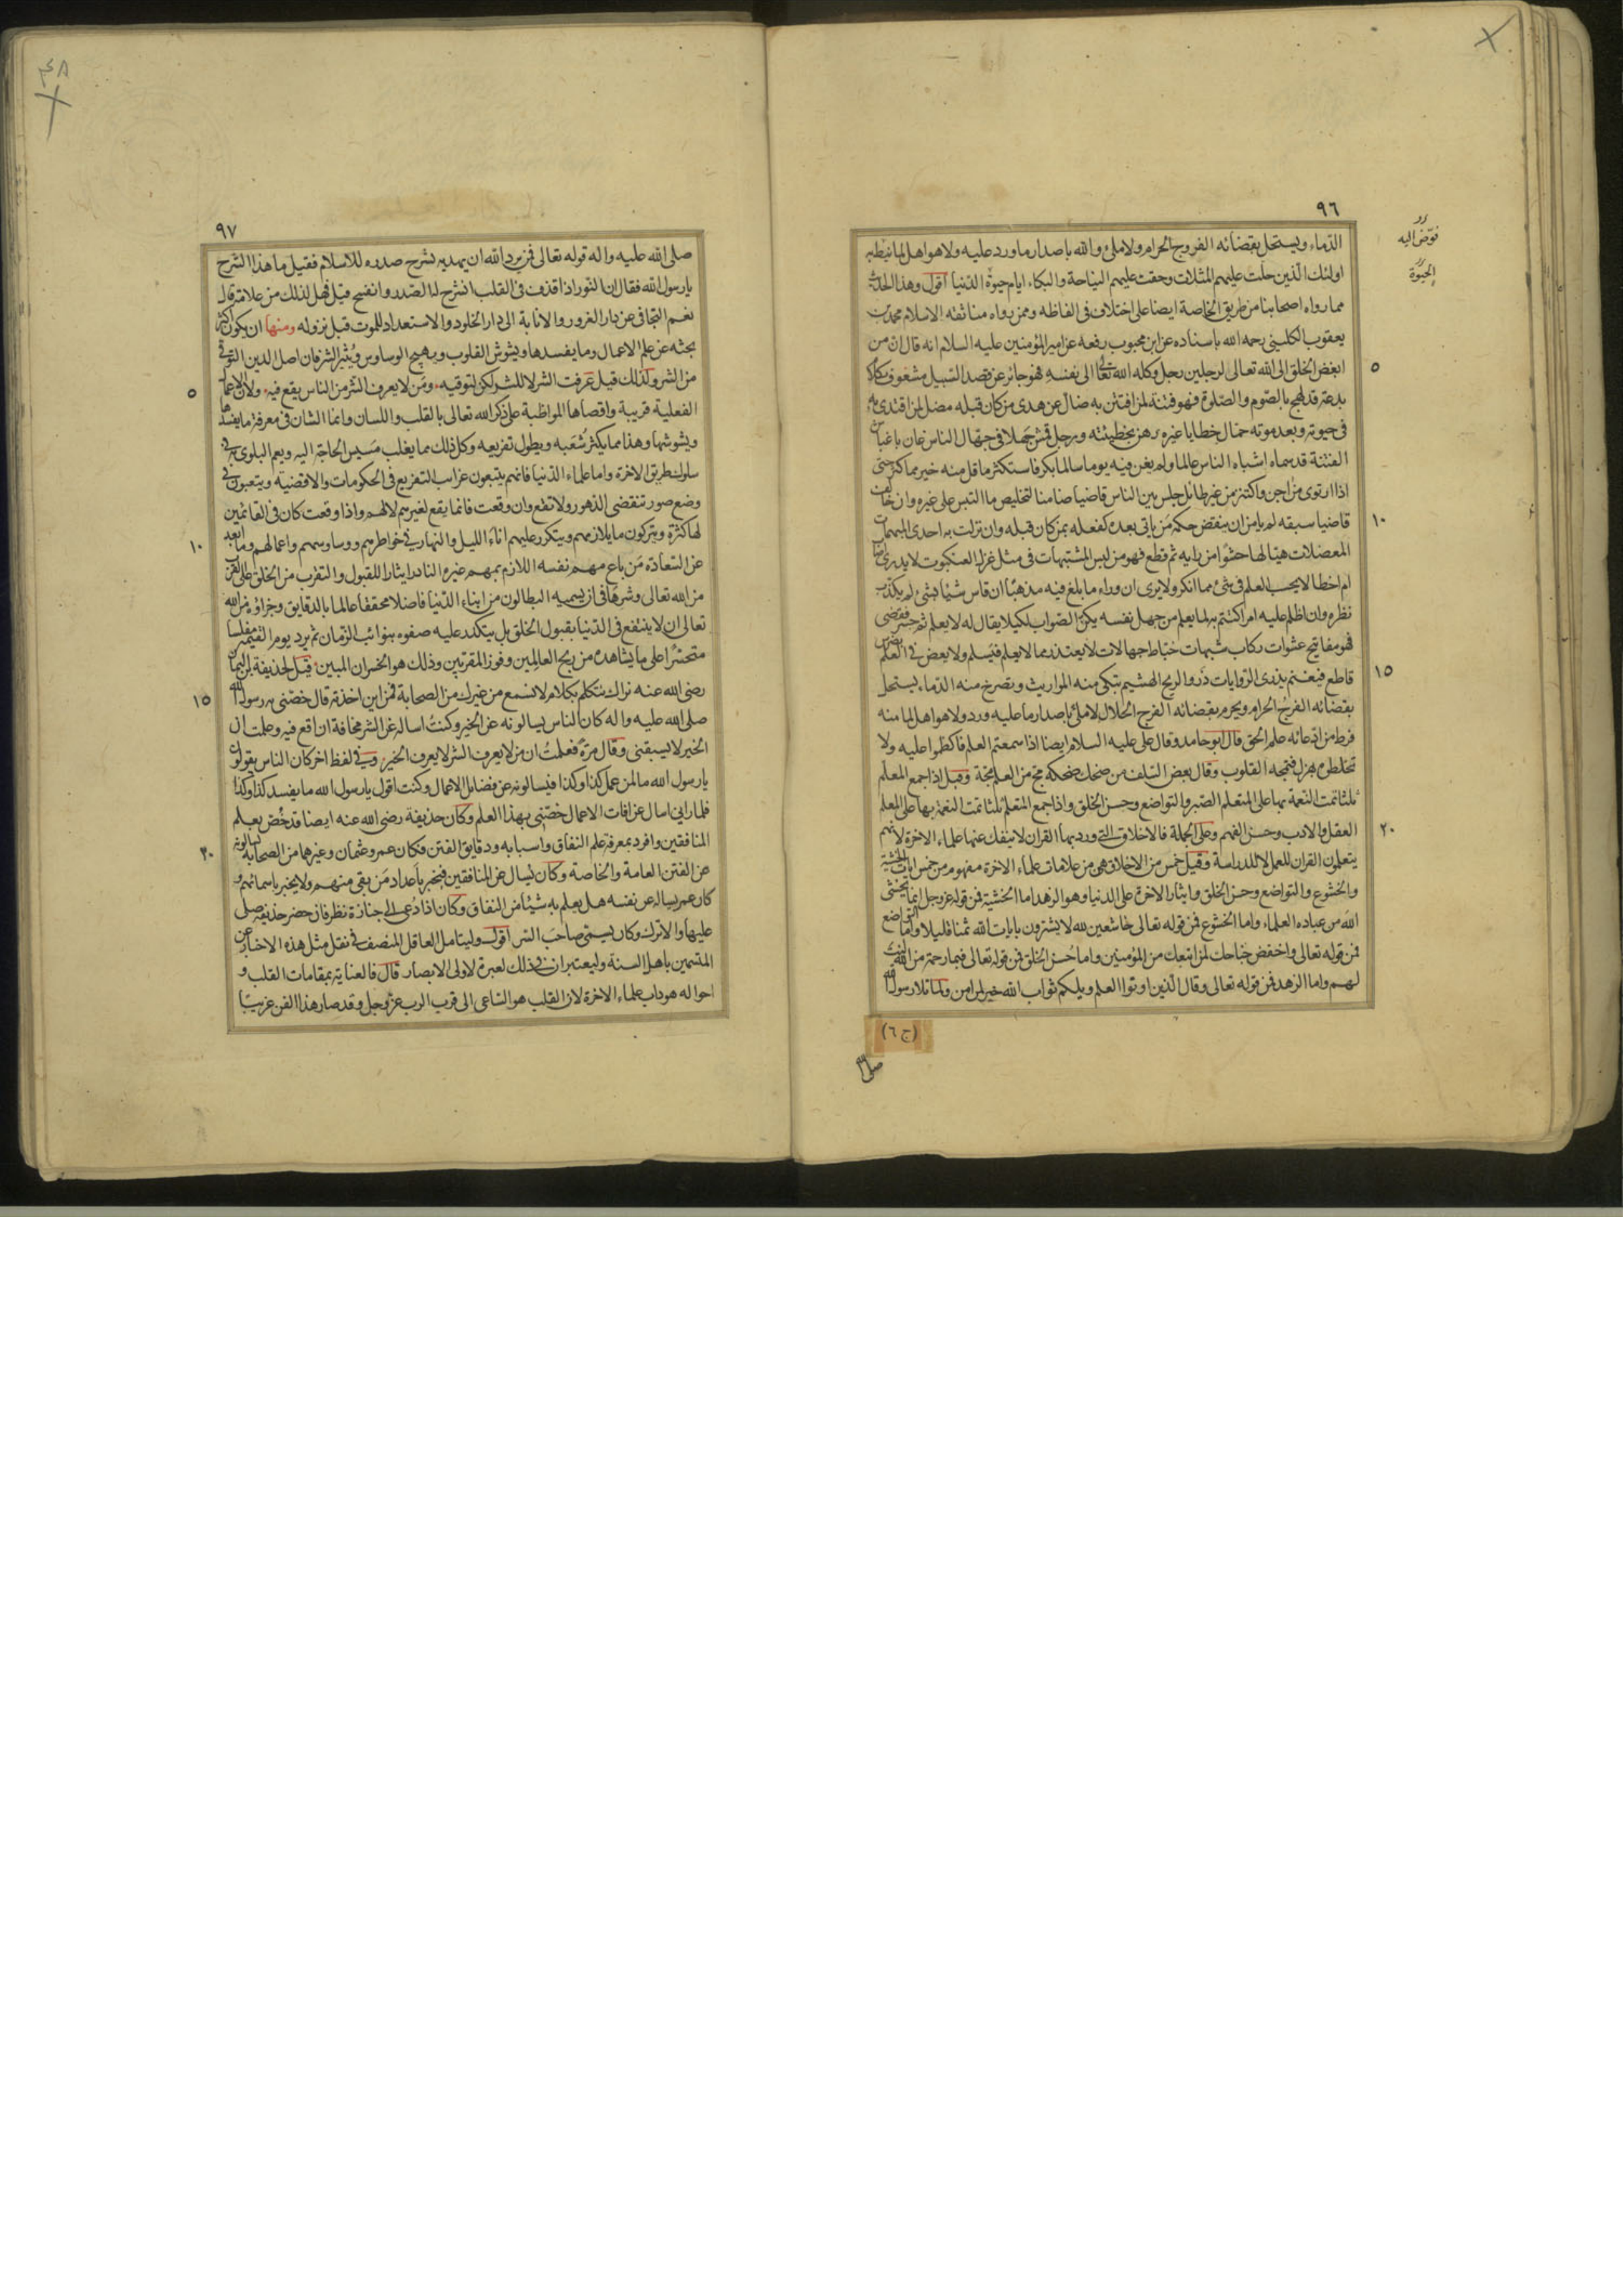 ٩٦
الدماء ويستحل بقضائه الفروج الحرام ولا ملئ والله باصدار ما ورد عليه ولا هو اهل لما نيط به
اولئك الذين حلت عليهم المثلات وحقت عليهم النياحة والبكاء ايام حيوة الدنيا اقول وهذا الحديث
مما رواه اصحابنا من طريق الخاصة ايضا على اختلاف في الفاظه وممن رواه منا ثقة الاسلام محمد بن
يعقوب الكليني رحمه الله باسناده عن ابن محبوب رفعه عن امير المؤمنين عليه السلام انه قال ان من
ابغض الخلق الى الله تعالى لرجلين رجل وكله الله تعالى الى نفسه فهو جائر عن قصد السبيل مشغوف بكلام
٥
بدعة قد لهج بالصوم والصلوة فهو فتنة لمن افتتن به ضال عن هدى من كان قبله مضل لمن اقتدى به
في حيوته وبعد موته حمال خطايا غيره رهن بخطيئته ورجل قمش جهلا في جهال الناس عان باغباش
الفتنة قد سماه اشباه الناس عالما ولم يغن فيه يوما سالما بكر فاستكثر ما قل منه خير مما كثر حتى
اذا ارتوى من اجن واكتنز من غير طائل جلس بين الناس قاضيا ضامنا لتخليص ما التبس على غيره وان خالف
قاضيا سبقه لم يامن ان ينقض حكمه من ياتي بعده كفعله بمن كان قبله وان نزلت به احدى المبهمات
١٠
المعضلات هيئا لها حشوا من رايه ثم قطع فهو من لبس المشتبهات في مثل غزل العنكبوت لا يدري اصاب
ام اخطا لا يحسب العلم في شئ مما انكر ولا يرى ان وراء ما بلغ فيه مذهبا ان قاس شيئا بشئ لم يكذب
نظره وان اظلم عليه امر اكتتم به لما يعلم من جهل نفسه لكيلا يقال له لا يعلم ثم جسر فقضى
فهو مفاتيح عشوات ركاب شبهات خباط جهالات لا يعتذر مما لا يعلم فيسلم ولا يعض في العلم بضرس
قاطع فيغنم يذري الروايات ذرو الريح الهشيم تبكي منه المواريث وتصرخ منه الدماء يستحل
١٥
بقضائه الفرج الحرام ويحرم بقضائه الفرج الحلال لا ملئ باصدار ما عليه ورد ولا هو اهل لما منه
فرط من ادعائه علم الحق قال ابو حامد وقال علي عليه السلام ايضا اذا سمعتم العلم فاكظموا عليه ولا
تخلطوه بهزل فتمجه القلوب وقال بعض السلف من ضحك ضحكة مج من العلم مجة وقيل اذا جمع المعلم
ثلثا تمت النعمة بها على المتعلم الصبر والتواضع وحسن الخلق واذا جمع المتعلم ثلثا تمت النعمة بها على المعلم
العقل والادب وحسن الفهم وعلى الجملة فالاخلاق التي ورد بها القران لا ينفك عنها علماء الاخرة لانهم
٢٠
يتعلمون القران للعمل لا للدراسة وقيل خمس من الاخلاق هي من علامات علماء الاخرة مفهومة من خمس ايات الخشية
والخشوع والتواضع وحسن الخلق وايثار الاخرة على الدنيا وهو الزهد اما الخشية فمن قوله عز وجل انما يخشى
الله من عباده العلماء واما الخشوع فمن قوله تعالى خاشعين لله لا يشترون بايات الله ثمنا قليلا واما التواضع
فمن قوله تعالى واخفض جناحك لمن اتبعك من المؤمنين واما حسن الخلق فمن قوله تعالى فبما رحمة من الله لنت
لهم واما الزهد فمن قوله تعالى وقال الذين اوتوا العلم ويلكم ثواب الله خير لمن امن ولما تلا رسول الله
(ج ٦)
فوض اليه
الحيوة
٩٧
صلى الله عليه واله قوله تعالى فمن يرد الله ان يهديه يشرح صدره للاسلام فقيل ما هذا الشرح
يا رسول الله فقال ان النور اذا قذف في القلب انشرح له الصدر وانفسح قيل فهل لذلك من علامة قال
نعم التجافي عن دار الغرور والانابة الى دار الخلود والاستعداد للموت قبل نزوله ومنها ان يكون اكثر
بحثه عن علم الاعمال وما يفسدها ويشوش القلوب ويهيج الوساوس ويثير الشر فان اصل الدين التوقي
من الشر ولذلك قيل عرفت الشر لا للشر لكن لتوقيه ومن لا يعرف الشر من الناس يقع فيه ولان الاعمال
٥
الفعلية قريبة واقصاها المواظبة على ذكر الله تعالى بالقلب واللسان وانما الشان في معرفة ما يفسدها
ويشوشها وهذا مما يكثر شعبه ويطول تفريعه وكل ذلك مما يغلب مسيس الحاجة اليه ويعم البلوى به في
سلوك طريق الاخرة واما علماء الدنيا فانهم يتبعون غرائب التفريع في الحكومات والاقضية ويتعبون في
وضع صور تنقضي الدهور ولا تقع وان وقعت فانما يقع لغيرهم لا لهم واذا وقعت كان في القائمين
لها كثرة ويتركون ما يلازمهم ويتكرر عليهم اناء الليل والنهار في خواطرهم ووساوسهم واعمالهم وما ابعد
١٠
عن السعادة من باع مهم نفسه اللازم بمهم غيره النادر ايثارا للقبول والتقرب من الخلق على القرب
من الله تعالى وشرها في ان يسميه البطالون من ابناء الدنيا فاضلا محققا عالما بالدقايق وجزاؤه من الله
تعالى ان لا ينتفع في الدنيا بقبول الخلق بل يتكدر عليه صفوه بنوائب الزمان ثم يرد يوم القيمة مفلسا
متحسرا على ما يشاهده من ربح العالمين وفوز المقربين وذلك هو الخسران المبين قيل لحذيفة بن اليمان
رضي الله عنه نراك تتكلم بكلام لا نسمع من غيرك من الصحابة فمن اين اخذته قال خصني به رسول الله
١٥
صلى الله عليه واله كان الناس يسالونه عن الخير وكنت اساله عن الشر مخافة ان اقع فيه وعلمت ان
الخير لا يسبقني وقال مرة فعلمت ان من لا يعرف الشر لا يعرف الخير وفي لفظ اخر كان الناس يقولون
يا رسول الله ما لمن عمل كذا وكذا فيسالونه عن فضايل الاعمال وكنت اقول يا رسول الله ما يفسد كذا وكذا
فلما راني اسال عن افات الاعمال خصني بهذا العلم وكان حذيفة رضي الله عنه ايضا قد خص بعلم
المنافقين وافرد بمعرفة علم النفاق واسبابه ودقايق الفتن فكان عمر وعثمان وغيرهما من الصحابة يسالونه
٢٠
عن الفتن العامة والخاصة وكان يسال عن المنافقين فيخبر باعداد من بقي منهم ولا يخبر باسمائهم و
كان عمر يساله عن نفسه هل يعلم به شيئا من النفاق وكان اذا دعي الى جنازة نظر فان حضر حذيفة صلى
عليها والا ترك وكان يسمى صاحب السر اقول وليتامل العاقل المنصف في نقل مثل هذه الاخبار عن
المتسمين باهل السنة وليعتبر ان في ذلك لعبرة لاولي الابصار قال فالعناية بمقامات القلب و
احواله هو داب علماء الاخرة لان القلب هو الساعي الى قرب الرب عز وجل وقد صار هذا الفن غريبا